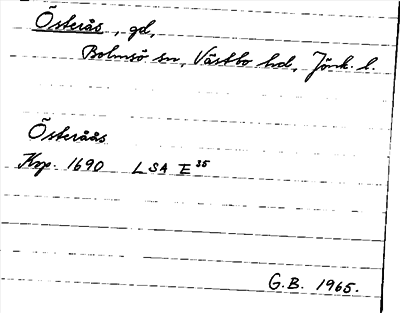 Österås, gd,
Bolmsö sn, Västbo hd, Jönk. l.
Österåås
Kop. 1690 LSA E³⁵
G.B. 1965.